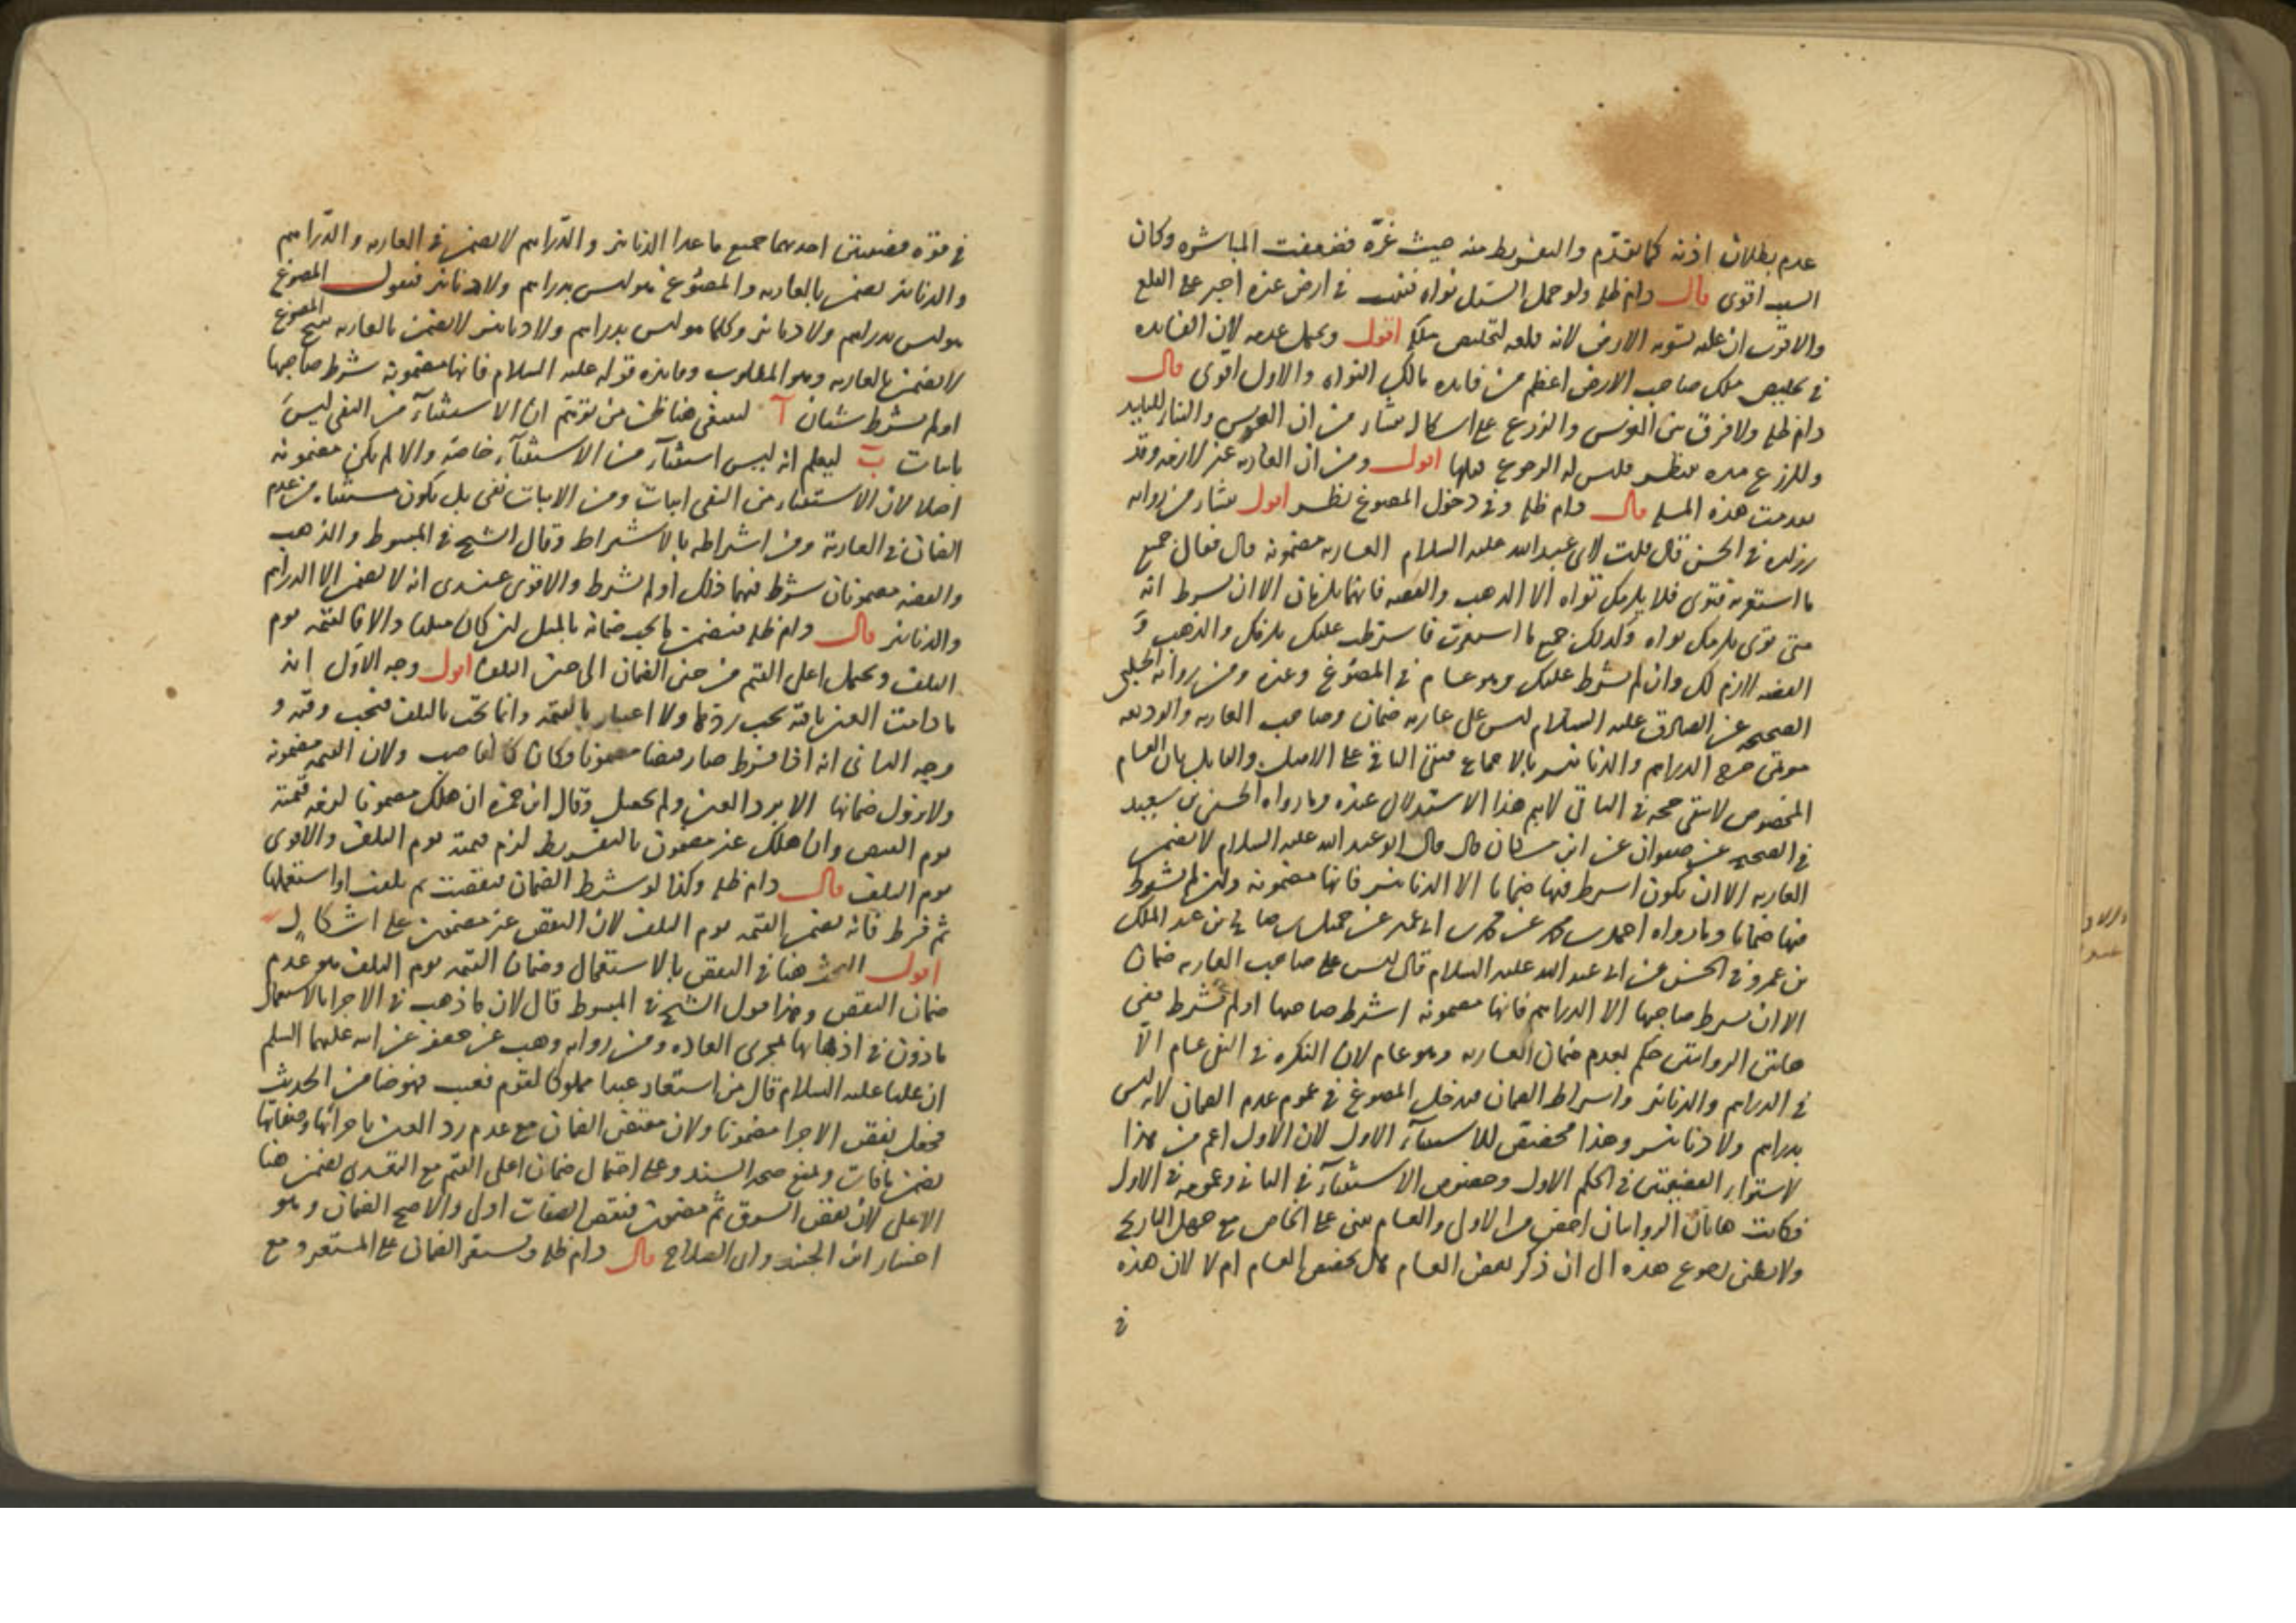 عدم بطلان اذنه كما تقدم والتفريط منه حيث غرّه فضعفت المباشره وكان
السبب اقوى قال دام ظله ولو حمل السيل نواه فنبت في ارض غيره اجبر على القلع
والاقرب ان عليه تسويه الارض لانه قلعه لتخليص ملكه اقول ويحتمل عدمه لان الفايده
في تخليص ملك صاحب الارض اعظم من فايده مالك النواه والاول اقوى قال
دام ظله ولا فرق بين الغرس والزرع على اشكال ينشاء من ان الغرس والبناء للتابيد
وللزرع مده تنتظر فليس له الرجوع قبلها اقول ومن ان العاريه غير لازمه وقد
تقدمت هذه المسله قال دام ظله وفي دخول المصوغ نظر اقول ينشاء من روايه
زراره في الحسن قال قلت لابي عبد الله عليه السلام العاريه مضمونه قال فقال جميع
ما استعرته فتوى فلا يلزمك تواه الا الذهب والفضه فانهما يلزمان الا ان يشترط انه
متى توى يلزمك تواه وكذلك جميع ما استعرت فاشترط عليك يلزمك والذهب و
الفضه لازم لك وان لم يشترط عليك وهو عام في المصوغ وغيره ومن روايه الحلبي
الصحيحه عن الصادق عليه السلام ليس على عاريه ضمان وصاحب العاريه والوديعه
موتمن خرج الدراهم والدنانير بالاجماع فبقى الباقي على الاصل والقايل بان العام
المخصوص لا يبقى حجه في الباقي لا يتم هذا الاستدلال عنده وما رواه الحسين بن سعيد
في الصحيح عن صفوان عن ابن مسكان قال قال ابو عبد الله عليه السلام لا يضمن
العاريه الا ان يكون اشترط فيها ضمانا الا الدنانير فانها مضمونه وان لم يشترط
فيها ضمانا وما رواه احمد بن محمد عن محمد بن ابي عمير عن جميل بن صالح عن عبد الملك
بن عمرو في الحسن عن ابي عبد الله عليه السلام قال ليس على صاحب العاريه ضمان
الا ان يشترط صاحبها الا الدراهم فانها مضمونه اشترط صاحبها او لم يشترط ففي
هاتين الروايتين حكم بعدم ضمان العاريه وهو عام لان النكره في النفي عام الا
في الدراهم والدنانير واشتراط الضمان فيدخل المصوغ في عموم عدم الضمان لانه ليس
بدراهم ولا دنانير وهذا مخصص للاستثناء الاول لان الاول اعم من هذا
لاستواء القضيتين في الحكم الاول وخصوص الاستثناء في الثاني وعمومه في الاول
فكانت هاتان الروايتان اخص من الاول والعام يبنى على الخاص مع جهل التاريخ
ولا يظن رجوع هذه الى ان ذكر بعض العام هل يخصص العام ام لا لان هذه
في
في قوه قضيتين احدهما جميع ما عدا الدنانير والدراهم لا يضمن في العاريه والدراهم
والدنانير يضمن بالعاريه والمصوغ هو ليس بدراهم ولا دنانير فنقول المصوغ
هو ليس بدراهم ولا دنانير وكلما هو ليس بدراهم ولا دنانير لا يضمن بالعاريه ينتج المصوغ
لا يضمن بالعاريه وهو المطلوب وفايده قوله عليه السلام فانها مضمونه شرط صاحبها
او لم يشترط شيئان آ لينفي هنا ظن من توهم ان الاستثناء من النفي ليس
باثبات ب ليعلم انه ليس استثناء من الاستثناء خاصه والا لم يكن مضمونه
اصلا لان الاستثناء من النفي اثبات ومن الاثبات نفي بل يكون مستثناه من عدم
الضمان في العاريه ومن اشتراطه بالاشتراط وقال الشيخ في المبسوط والذهب
والفضه مضمونان شرط فيهما ذلك او لم يشترط والاقوى عندى انه لا يضمن الا الدراهم
والدنانير قال دام ظله فيضمن ما يجب ضمانه بالمثل ان كان مثليا والا فالقيمه يوم
التلف ويحتمل اعلى القيم من حين الضمان الى حين التلف اقول وجه الاول انه
ما دامت العين باقيه يجب ردها ولا اعتبار بالقيمه وانما تجب بالتلف فيجب وقته و
وجه الثاني انه اذا فرط صار قبضا مضمونا وكان كالغاصب ولان القيمه مضمونه
ولا يزول ضمانها الا برد العين ولم يحصل وقال ابن حمزه ان هلك مضمونا لزمه قيمته
يوم القبض وان هلك غير مضمون بالتفريط لزم قيمته يوم التلف والاقوى
يوم التلف قال دام ظله وكذا لو شرط الضمان فنقصت ثم تلفت او استعملها
ثم فرط فانه يضمن القيمه يوم التلف لان النقص غير مضمون على اشكال
اقول البحث هنا في النقص بالاستعمال وضمان القيمه يوم التلف هو عدم
ضمان النقص وهذا قول الشيخ في المبسوط قال لان ما ذهب في الاجرا بالاستعمال
ماذون في اذهابها لمجرى العاده ومن روايه وهب عن جعفر عن ابيه عليهما السلم
ان عليا عليه السلام قال من استعار عبدا مملوكا لقوم فعيب فهو ضامن الحديث
فجعل نقص الاجرا مضمونا ولان مقتضى الضمان مع عدم رد العين باجزائها وصفاتها
يضمن ما فات ويمنع صحه السند وعلى احتمال ضمان اعلى القيم مع التعدى يضمن هنا
الاعلى لان نقص السوق ثم مضمون فنقص الصفات اولى والاصح الضمان وهو
اختيار ابن الجنيد وابي الصلاح قال دام ظله ويستقر الضمان على المستعير ومع